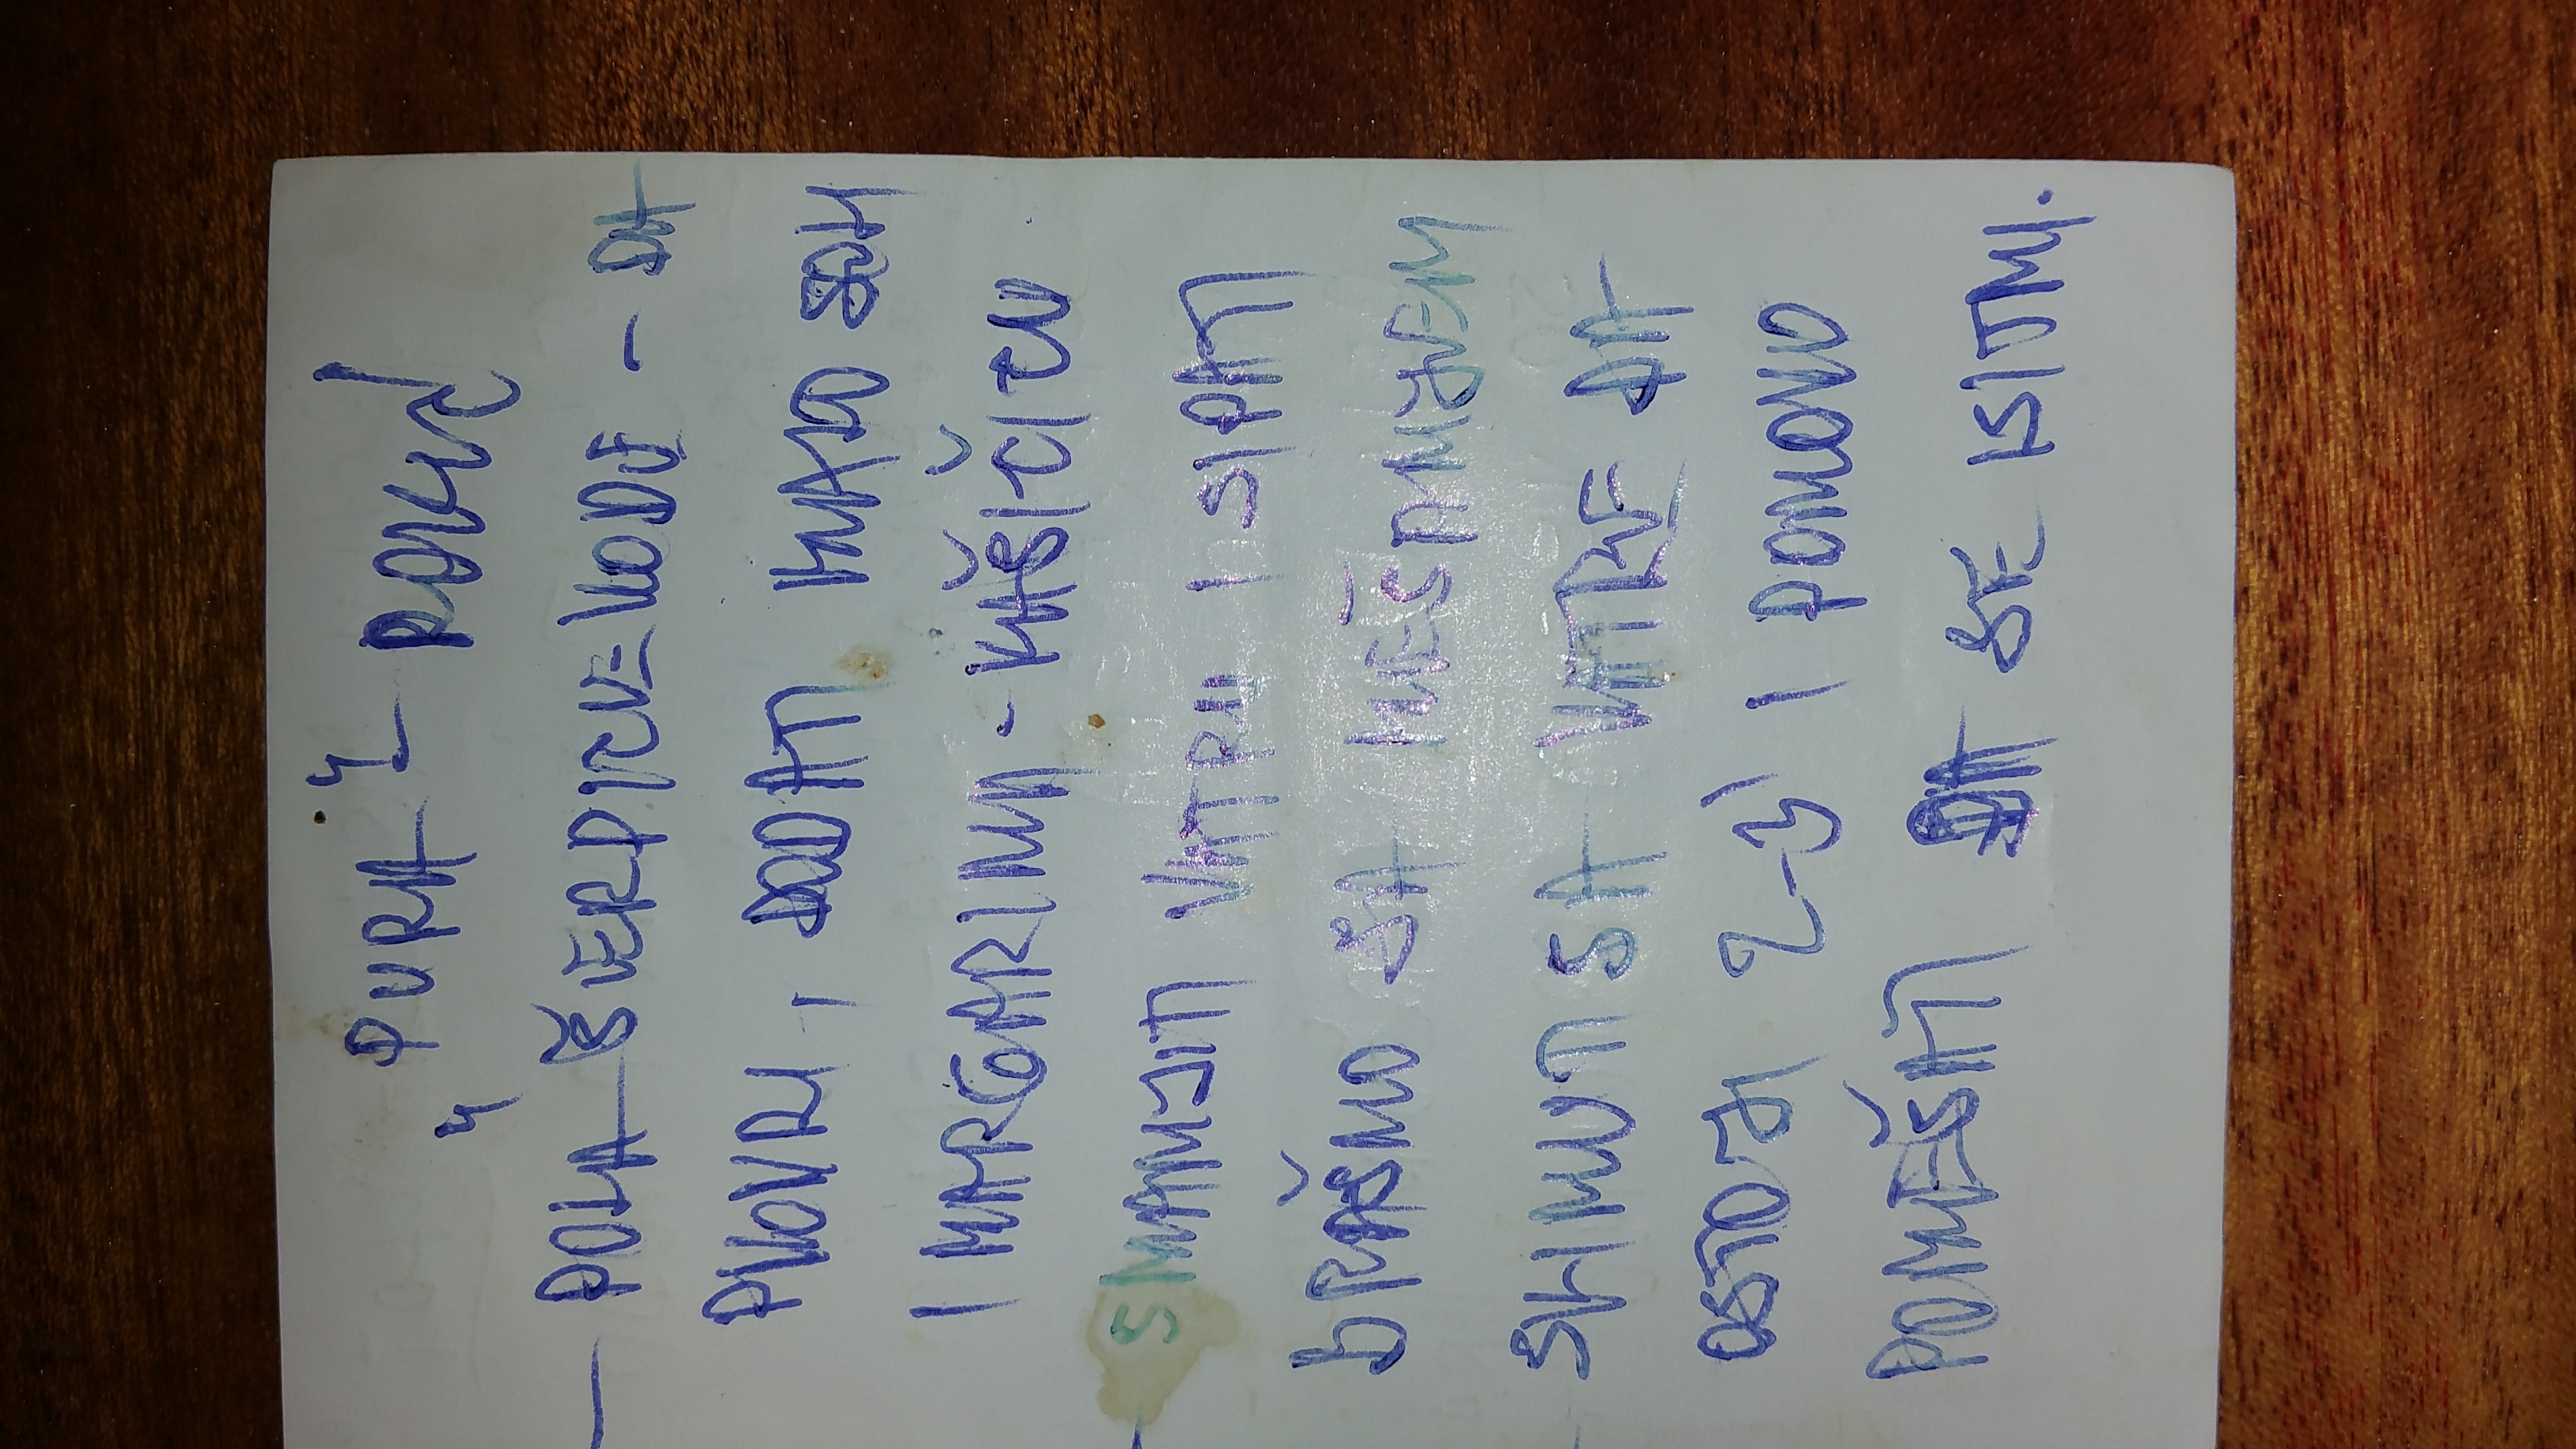 „PURA“ - ROKIĆ
- POLA ŠERPICE VODE - DA
PVOVRI, DODATI MALO SOLI
I MARGARINA - KAŠIČICU
- SMANJITI VATRU I SIPATI
BRAŠNO SA MEŠANJEM
- SKINUTI SA VATRE DA
OSTOJI 2-3' I PONOVO
POMEŠATI DA SE ISITNI.